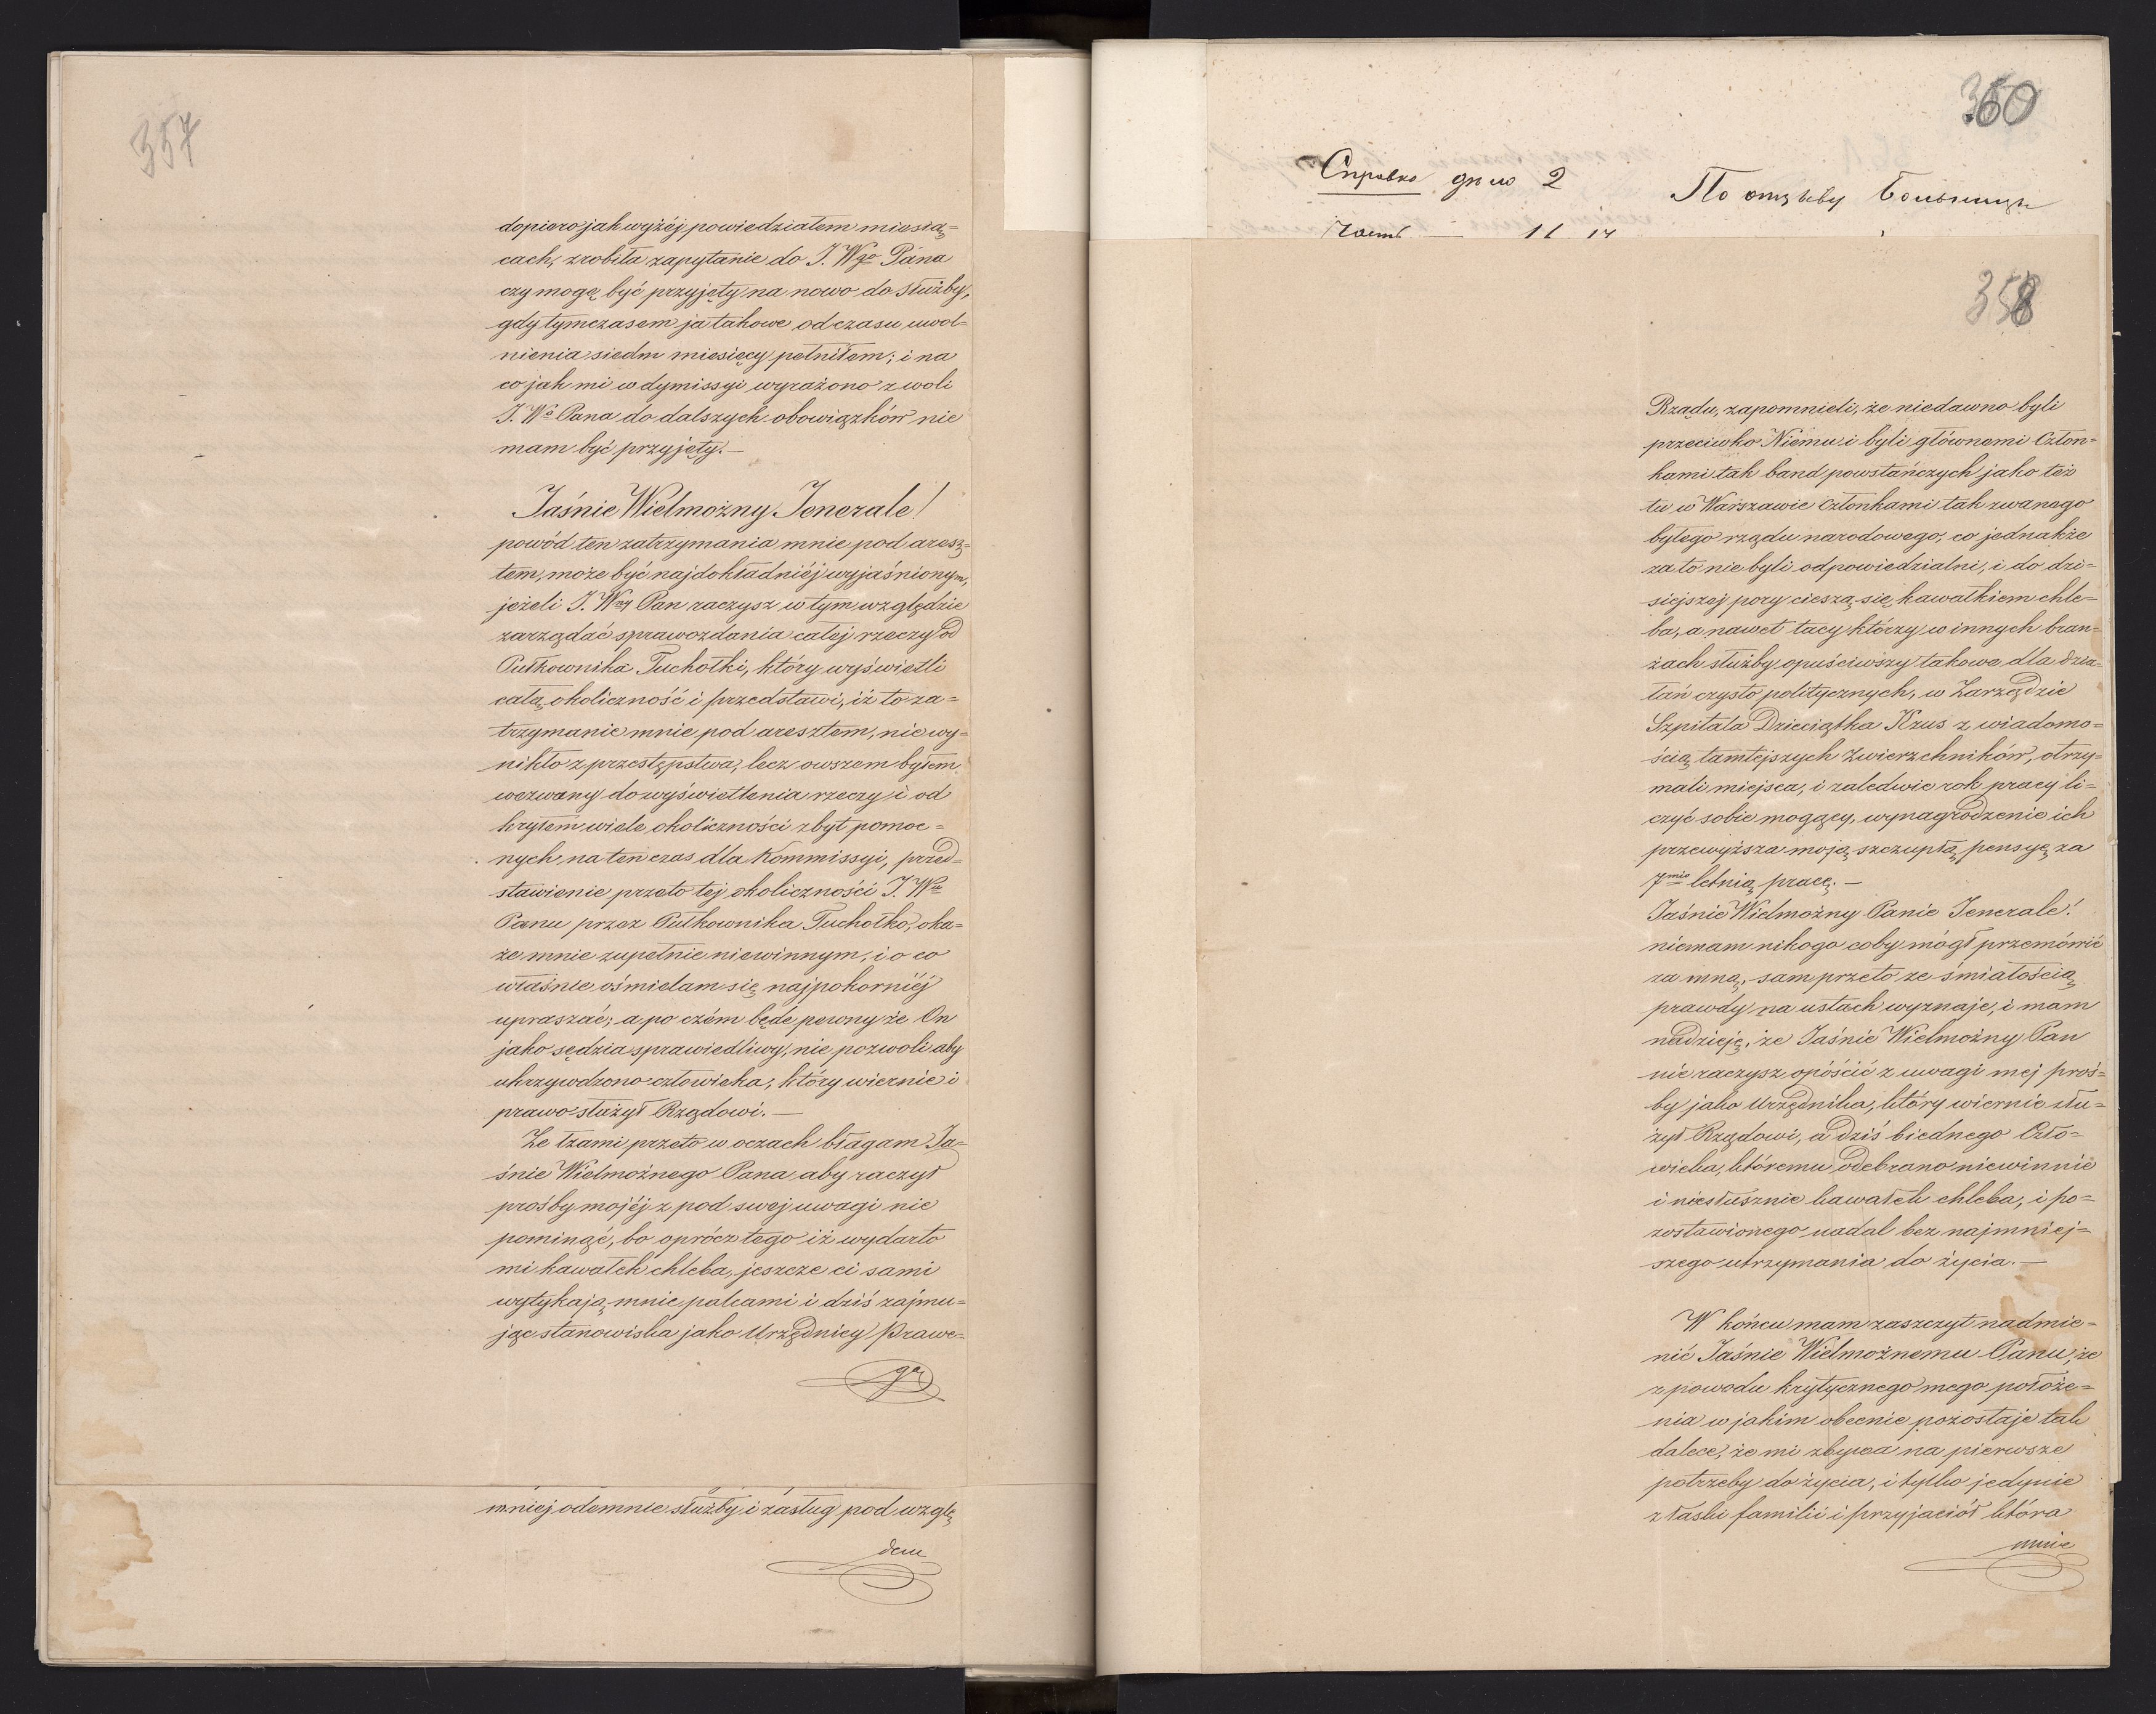 357
dopiero jak wyżéj powiedziałem miesią=
cach, zrobiła zapytanie do J. Wgo Pana
czy mogę być przyjęty na nowo do służby,
gdy tymczasem ja takowe od czasu uwol=
nienia siedm miesięcy pełniłem; i na
co jak mi w dymissyi wyrażono z woli
J. Wo Pana do dalszych obowiązków nie
mam być przyjęty.—
Jaśnie Wielmożny Jenerale!
powód ten zatrzymania mnie pod aresz=
tem, może być najdokładniéj wyjaśnionym,
jeżeli J. Wny Pan raczysz w tym względzie
zarządać sprawozdania całej rzeczy od
Pułkownika Tuchołki, który wyświetli
całą okoliczność i przedstawi, iż to za=
trzymanie mnie pod aresztem, nie wy=
nikło z przestępstwa, lecz owszem byłem
wezwany do wyświetlenia rzeczy i od
kryłem wiele okoliczności zbyt pomoc=
nych na ten czas dla Kommissyi, przed=
stawienie przeto tej okoliczności J. W
Panu przez Pułkownika Tuchołko, oka=
że mnie zupełnie niewinnym, i o co
właśnie ośmielam się najpokorniéj
upraszać; a po czém będe pewny że On
jako sędzia sprawiedliwy, nie pozwoli aby
ukrzywdzono człowieka, który wiernie i
prawo służył Rządowi.—
Ze łzami przeto w oczach błagam Ja=
śnie Wielmożnego Pana aby raczył
prośby mojéj z pod swej uwagi nie
pominąć, bo oprócz tego iż wydarto
mi kawałek chleba, jeszcze ci sami
wytykają mnie palcami i dziś zajmu=
jąc stanowiska jako Urzędnicy Prawe=
go
mniej odemnie służby i zasług pod wzglę
dem
360
Справка дѣло 2
По отзыву Больницы
Часть — 11 14
358
Rządu, zapomnieli, że niedawno byli
przeciwko Niemu i byli głównemi Człon=
kami tak band powstańczych jako też
tu w Warszawie członkami tak zwanego
byłego rządu narodowego, co jednakże
za to nie byli odpowiedzialni, i do dzi=
siejszej pory cieszą się kawałkiem chle=
ba, a nawet tacy którzy w innych bran=
żach służby opuściwszy takowe dla dzia=
łań czysto politycznych, w Zarządzie
Szpitala Dzieciątka Jezus z wiadomo=
ścią tamtejszych Zwierzchników, otrzy=
mali miejsca, i zaledwie rok pracy li=
czyć sobie mogący, wynagrodzenie ich
przewyższa moją szczupłą pensyę za
7mio letnią pracę.—
Jaśnie Wielmożny Panie Jenerale!
niemam nikogo coby mógł przemówić
za mną, sam przeto ze śmiałością
prawdy na ustach wyznaje, i mam
nadzieję, że Jaśnie Wielmożny Pan
nie raczysz opóścić z uwagi mej proś=
by jako Urzędnika, który wiernie słu=
żył Rządowi, a dziś biednego Czło=
wieka, któremu odebrano niewinnie
i niesłusznie kawałek chleba, i po=
zostawionego nadal bez najmniej=
szego utrzymania do życia.—
W końcu mam zaszczyt nadmie=
nić Jaśnie Wielmożnemu Panu, że
z powodu krytycznego mego położe=
nia w jakim obecnie pozostaje tak
dalece, że mi zbywa na pierwsze
potrzeby do życia, i tylko jedynie
z łaski familii i przyjaciół która
mnie